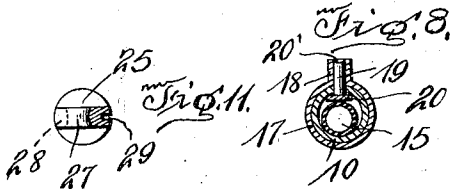 Fig. 8.
20'
18
19
20
17
15
10
Fig. 11.
25
28
27
29